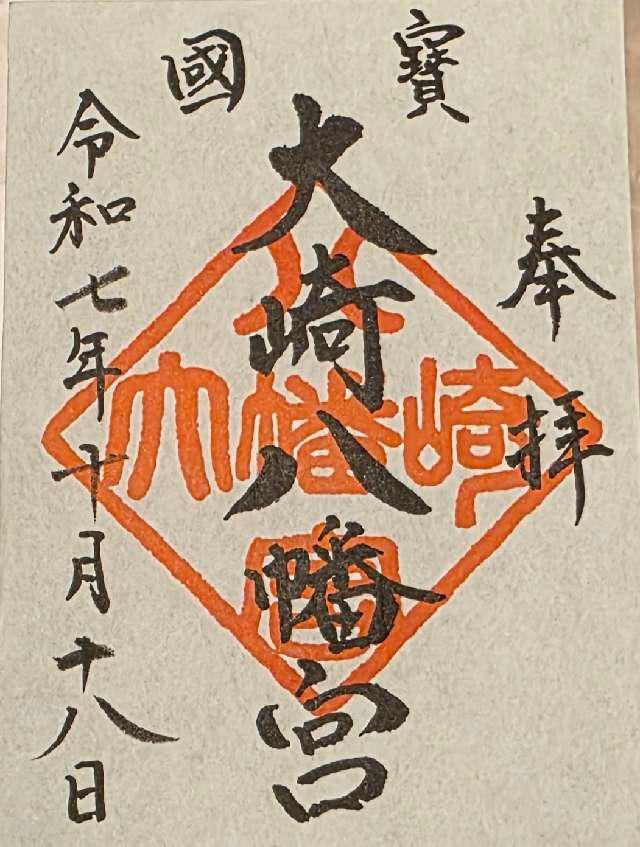 寶國
奉拝
大崎八幡宮
令和七年十月十八日
大崎八幡宮